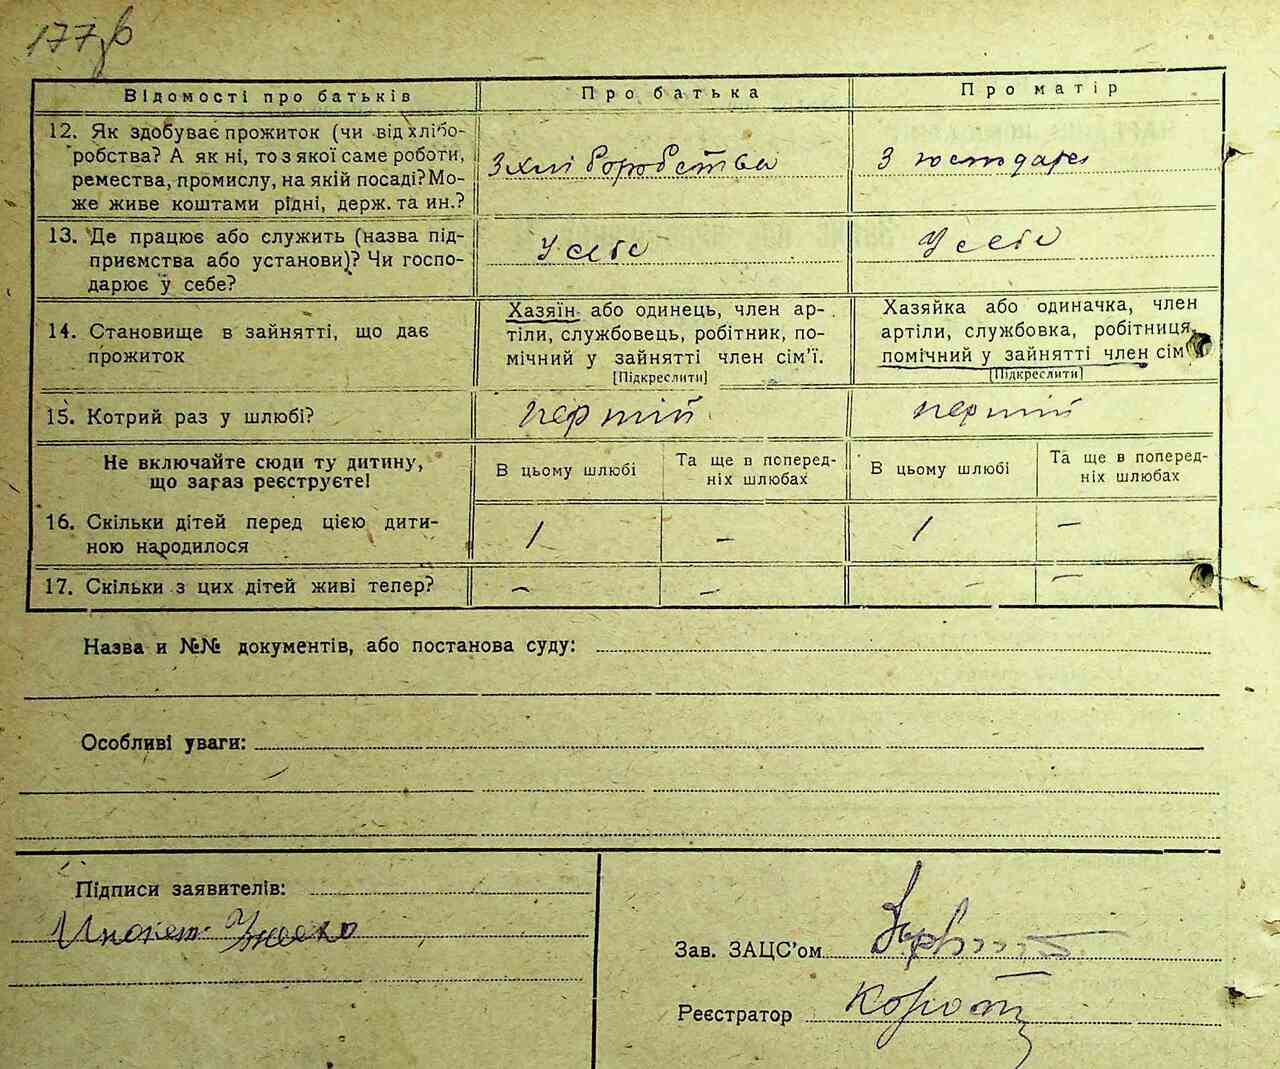 177
Відомості про батьків
Про батька
Про матір
12. Як здобуває прожиток (чи від хлібо-
робства? А як ні, то з якої саме роботи,
ремества, промислу, на якій посаді? Мо-
же живе коштами рідні, держ. та ин.?
З хліборобства
З господарс
13. Де працює або служить (назва під-
приємства або установи)? Чи госпо-
дарює у себе?
У себе
У себе
14. Становище в зайнятті, що дає
прожиток
Хазяїн або одинець, член ар-
тіли, службовець, робітник, по-
мічний у зайнятті член сім'ї.
[Підкреслити]
Хазяйка або одиначка, член
артіли, службовка, робітниця,
помічний у зайнятті член сім'
[Підкреслити]
15. Котрий раз у шлюбі?
перший
перший
Не включайте сюди ту дитину,
що зараз реєструєте!
В цьому шлюбі
Та ще в поперед-
ніх шлюбах
В цьому шлюбі
Та ще в поперед-
ніх шлюбах
16. Скільки дітей перед цією дити-
ною народилося
1 – 1 –
17. Скільки з цих дітей живі тепер?
– – – –
Назва и №№ документів, або постанова суду:
Особливі уваги:
Підписи заявителів:
Зав. ЗАЦС'ом
Реєстратор